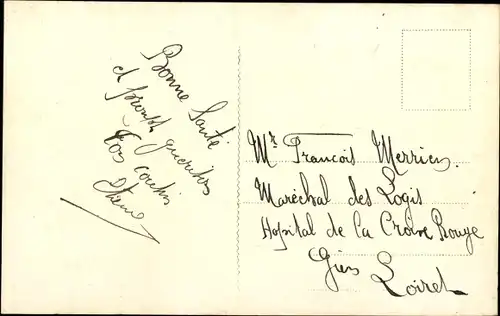 Bonne Santé
et prompt
Tos cousins
Mr François Merrien
Maréchal des Logis
Hopital de la Croix Rouge
Gien
Loiret